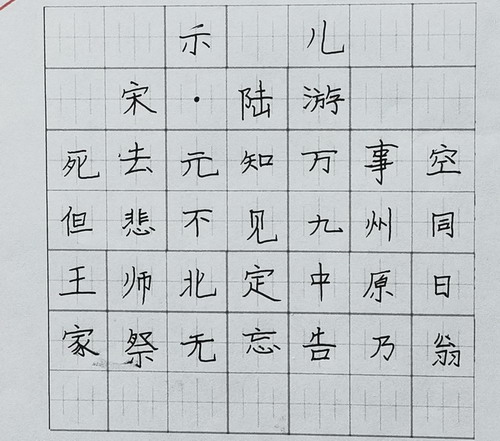 示儿
宋·陆游
死去元知万事空
但悲不见九州同
王师北定中原日
家祭无忘告乃翁